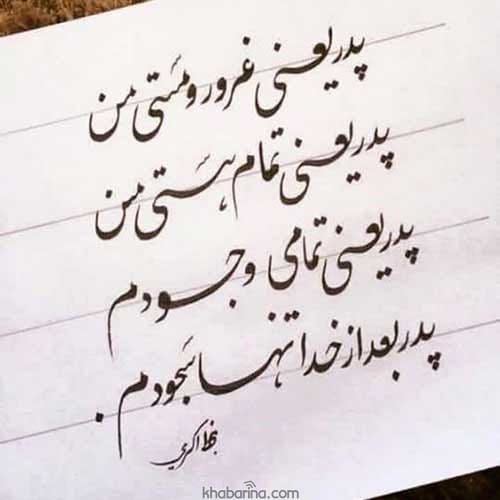 پدر یعنی غرور و مستی من
پدر یعنی تمام هستی من
پدر یعنی تمامی وجودم
پدر بعد از خدا تنها سجودم.
بخط اکبری
khabarina.com